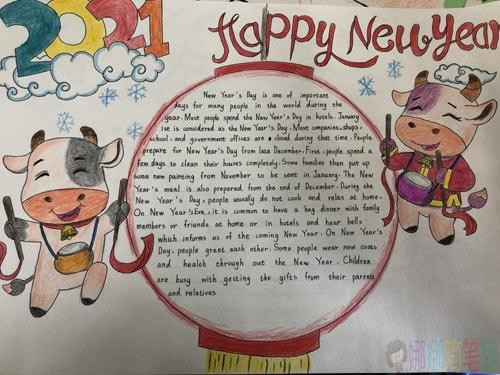 2021
Happy New Year
New Year's Day is one of important
days for many people in the world during the
year. Most people spend the New Year's Day in hotels. January
1se is considered as the New Year's Day. Most companies, shops,
school, and government offices are a closed during that time. People
prepare for New Year's Day from late December. First, people spend a
few days to clean their houses completely. Some families then put up
some new painting from November to be sent in January. The New
Year's meal is also prepared from the end of December. During the
New Year's Day, people usually do not cook and relax at home.
On New Year's Eve, it is common to have a bag dinner with family
members or friends at home or in hotels and hear bells,
which informs us of the coming New Year. On New Year's
Day, people greet each other. Some people wear new coats
and health through out the New Year. Children
are busy with getting the gifts from their parents
and relatives